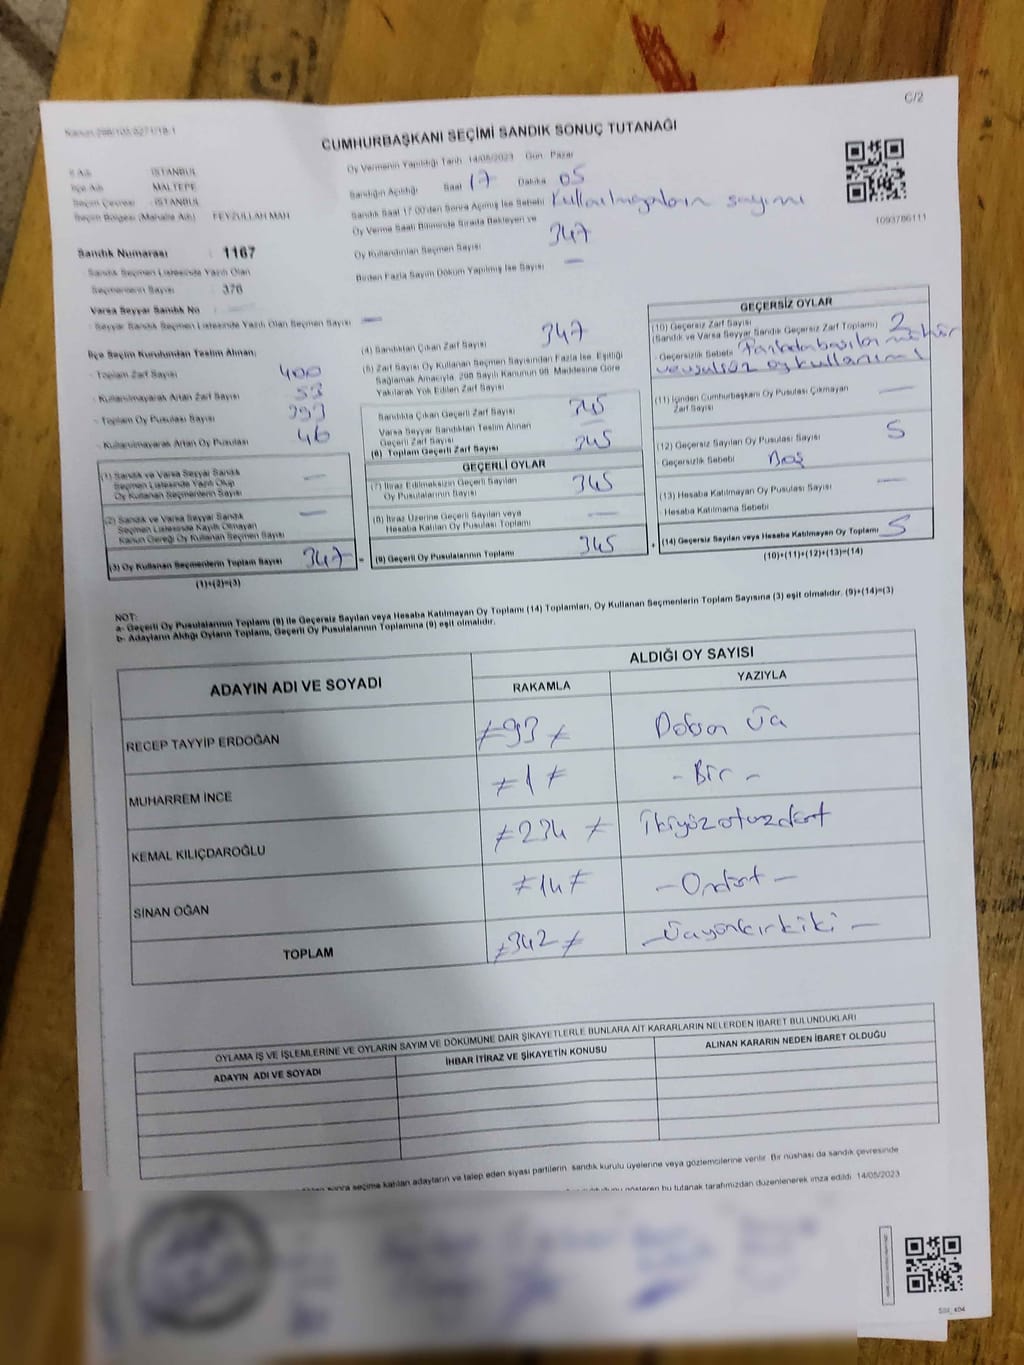 C/2
Kanun:298/105,6271/18-1
CUMHURBAŞKANI SEÇİMİ SANDIK SONUÇ TUTANAĞI
İl Adı : İSTANBUL
İlçe Adı : MALTEPE
Seçim Çevresi : İSTANBUL
Seçim Bölgesi (Mahalle Adı) : FEYZULLAH MAH
Oy Vermenin Yapıldığı Tarih 14/05/2023 Gün : Pazar
Sandığın Açıldığı Saat 17 Dakika 05
Sandık Saat 17:00'den Sonra Açılmış İse Sebebi
Oy Verme Saati Bitiminde Sırada Bekleyen ve
Oy Kullandırılan Seçmen Sayısı 347
Birden Fazla Sayım Döküm Yapılmış İse Sayısı —
1093786111
Sandık Numarası : 1167
Sandık Seçmen Listesinde Yazılı Olan
Seçmenlerin Sayısı : 376
Varsa Seyyar Sandık No :
- Seyyar Sandık Seçmen Listesinde Yazılı Olan Seçmen Sayısı —
İlçe Seçim Kurulundan Teslim Alınan;
- Toplam Zarf Sayısı 400
- Kullanılmayarak Artan Zarf Sayısı 53
- Toplam Oy Pusulası Sayısı 393
- Kullanılmayarak Artan Oy Pusulası 46
(1) Sandık ve Varsa Seyyar Sandık
Seçmen Listesinde Yazılı Olup
Oy Kullanan Seçmenlerin Sayısı —
(2) Sandık ve Varsa Seyyar Sandık
Seçmen Listesinde Kayıtlı Olmayan
Kanun Gereği Oy Kullanan Seçmen Sayısı —
(3) Oy Kullanan Seçmenlerin Toplam Sayısı 347
(1)+(2)=(3)
(4) Sandıktan Çıkan Zarf Sayısı 347
(5) Zarf Sayısı Oy Kullanan Seçmen Sayısından Fazla İse, Eşitliği
Sağlamak Amacıyla, 298 Sayılı Kanunun 98. Maddesine Göre
Yakılarak Yok Edilen Zarf Sayısı
Sandıkta Çıkan Geçerli Zarf Sayısı 345
Varsa Seyyar Sandıktan Teslim Alınan
Geçerli Zarf Sayısı —
(6) Toplam Geçerli Zarf Sayısı 345
GEÇERLİ OYLAR
(7) İtiraz Edilmeksizin Geçerli Sayılan
Oy Pusulalarının Sayısı 345
(8) İtiraz Üzerine Geçerli Sayılan veya
Hesaba Katılan Oy Pusulası Toplamı —
(9) Geçerli Oy Pusulalarının Toplamı 345
GEÇERSİZ OYLAR
(10) Geçersiz Zarf Sayısı
(Sandık ve Varsa Seyyar Sandık Geçersiz Zarf Toplamı) 2
- Geçersizlik Sebebi
ve usulsüz oy kullanımı
(11) İçinden Cumhurbaşkanı Oy Pusulası Çıkmayan
Zarf Sayısı —
(12) Geçersiz Sayılan Oy Pusulası Sayısı 5
- Geçersizlik Sebebi Boş
(13) Hesaba Katılmayan Oy Pusulası Sayısı —
- Hesaba Katılmama Sebebi
(14) Geçersiz Sayılan veya Hesaba Katılmayan Oy Toplamı 5
(10)+(11)+(12)+(13)=(14)
NOT:
a- Geçerli Oy Pusulalarının Toplamı (9) ile Geçersiz Sayılan veya Hesaba Katılmayan Oy Toplamı (14) Toplamları, Oy Kullanan Seçmenlerin Toplam Sayısına (3) eşit olmalıdır. (9)+(14)=(3)
b- Adayların Aldığı Oyların Toplamı, Geçerli Oy Pusulalarının Toplamına (9) eşit olmalıdır.
ADAYIN ADI VE SOYADI
ALDIĞI OY SAYISI
RAKAMLA YAZIYLA
RECEP TAYYİP ERDOĞAN ≠93≠ Doksan Üç
MUHARREM İNCE ≠1≠ - Bir -
KEMAL KILIÇDAROĞLU ≠234≠ İkiyüzotuzdört
SİNAN OĞAN ≠14≠ - Ondört -
TOPLAM ≠342≠ - Üçyüzkırkiki -
OYLAMA İŞ VE İŞLEMLERİNE VE OYLARIN SAYIM VE DÖKÜMÜNE DAİR ŞİKAYETLERLE BUNLARA AİT KARARLARIN NELERDEN İBARET BULUNDUKLARI
ADAYIN ADI VE SOYADI İHBAR İTİRAZ VE ŞİKAYETİN KONUSU ALINAN KARARIN NEDEN İBARET OLDUĞU
sonra seçime katılan adayların ve talep eden siyasi partilerin sandık kurulu üyelerine veya gözlemcilerine verilir. Bir nüshası da sandık çevresinde
gösteren bu tutanak tarafımızdan düzenlenerek imza edildi. 14/05/2023